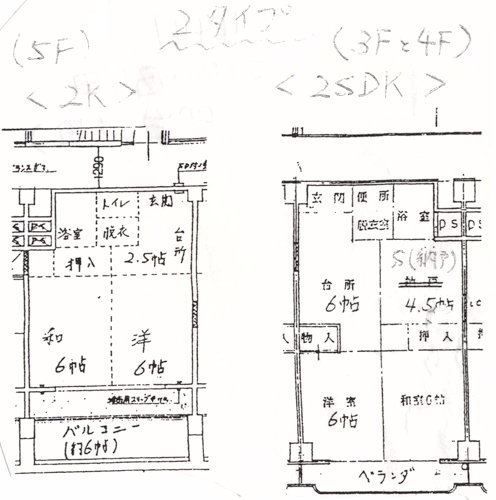 2タイプ
(5F)
(3Fと4F)
<2K>
<2SDK>
1290
トイレ
玄関
浴室
脱衣
台所
押入
2.5帖
和
6帖
洋
6帖
バルコニー
(約6帖)
玄関
便所
浴室
脱衣室
DS
DS
S(納戸)
台所
6帖
納戸
4.5帖
物入
押入
洋室
6帖
和室6帖
ベランダ